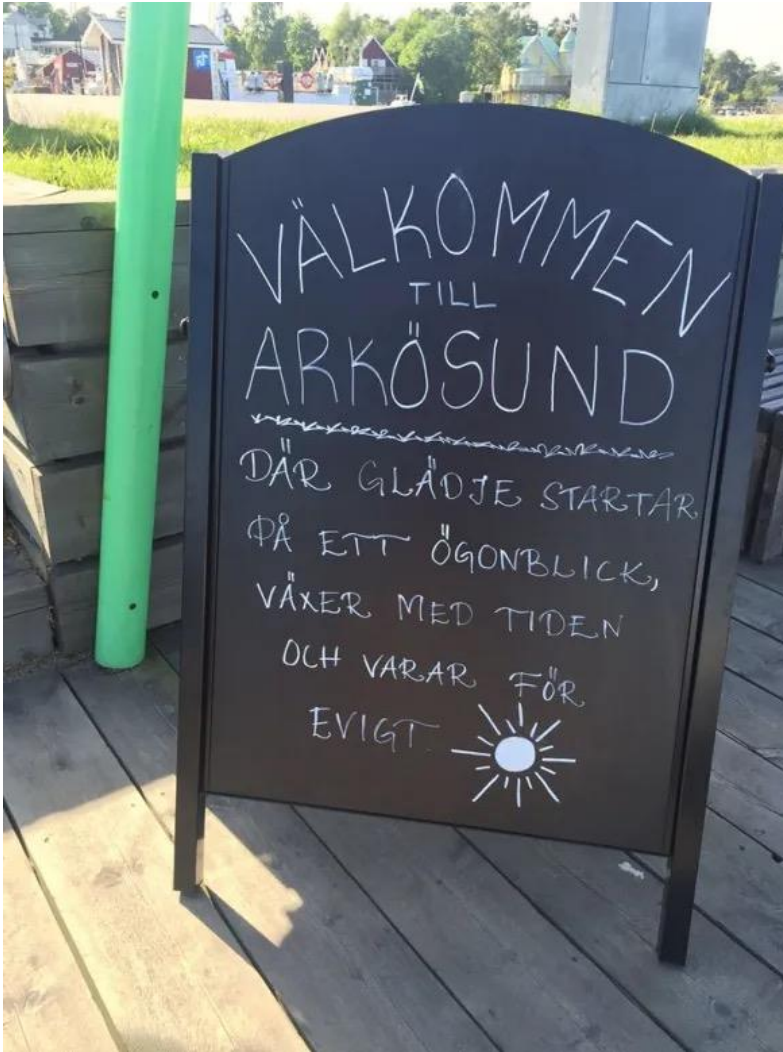 VÄLKOMMEN
TILL
ARKÖSUND
DÄR GLÄDJE STARTAR
PÅ ETT ÖGONBLICK,
VÄXER MED TIDEN
OCH VARAR FÖR
EVIGT.